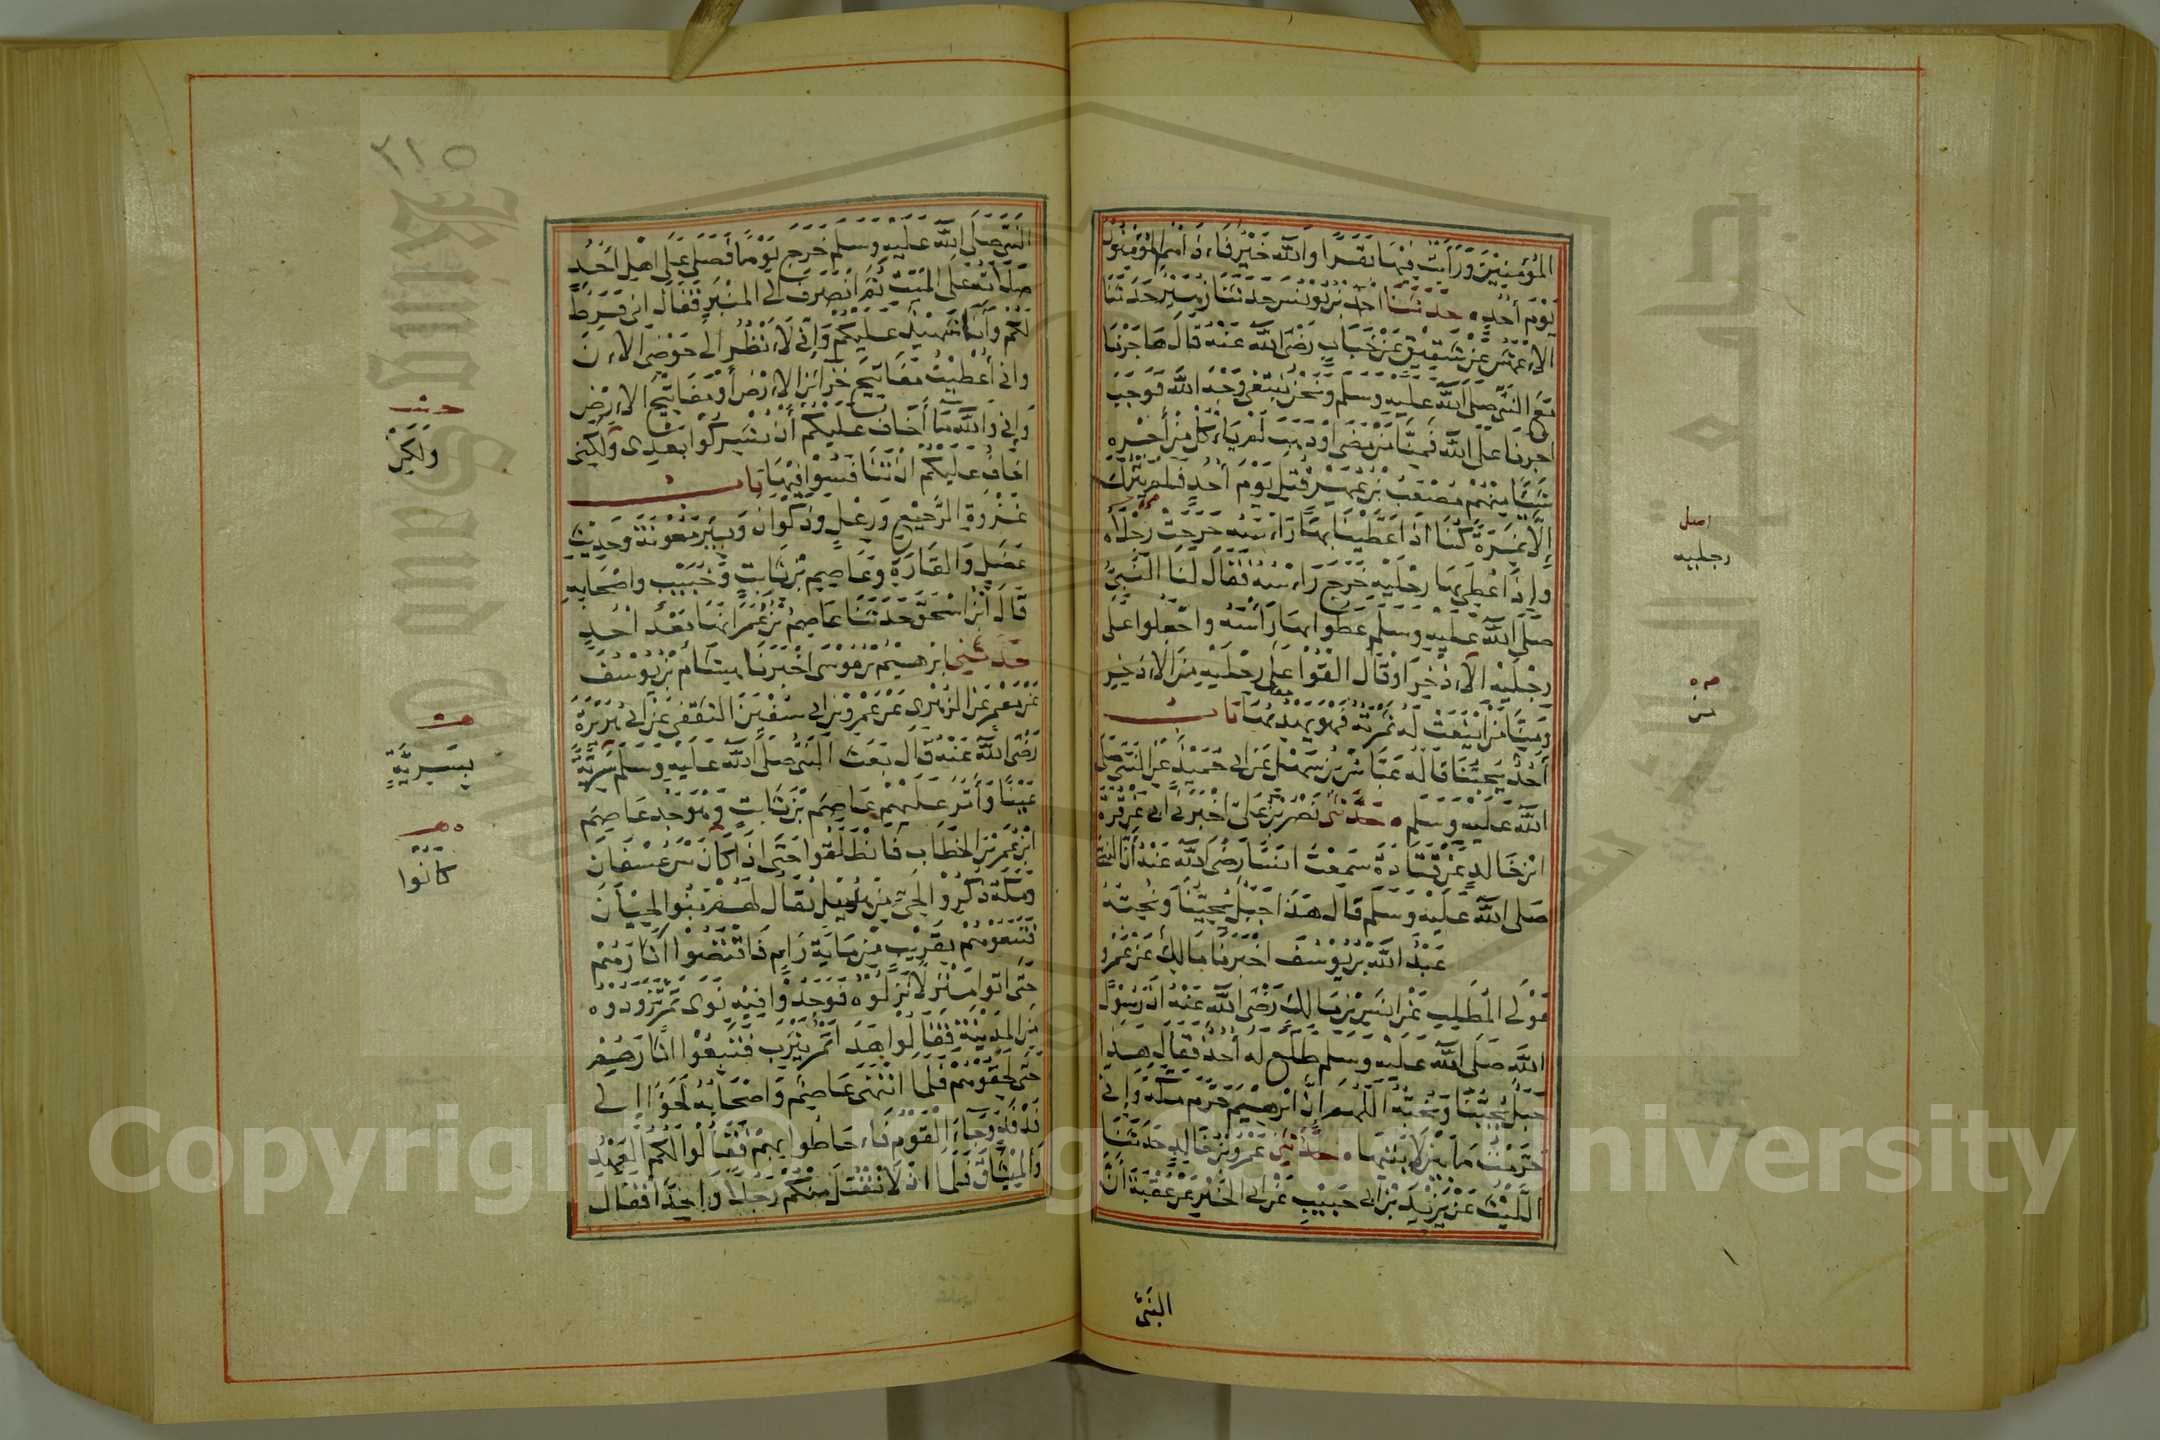 المُؤمِنِيْنَ وَرَأَيْتُ فِيْهَا بَقَرًا وَاللّٰهُ خَيْرٌ فَاءِذَا هُمُ المُؤْمِنُوْنَ
يَوْمَ أُحُدٍ ۰ حَدَّثَنَا احْمَدُ بْنُ يُوْنُسَ حَدَّثَنَا زُهَيْرٌ حَدَّثَنَا
الاَعْمَشُ عَنْ شَقِيْقٍ عَنْ خَبَّابٍ رَضِىَ اللّٰهُ عَنْهُ قَالَ هَاجَرْنَا
مَعَ النَّبِىِّ صَلَّى اللّٰهُ عَلَيْهِ وَسَلَّمَ وَنَحْنُ نَبْتَغِى وَجْهَ اللّٰهِ فَوَجَبَ
اَجْرُنَا عَلَى اللّٰهِ فَمِنَّا مَنْ مَضَى اوْ ذَهَبَ لَمْ يَاءْكُلْ مِنْ أَجْرِهِ
شَيْئًا مِنْهُمْ مُصْعَبُ بْنُ عُمَيْرٍ قُتِلَ يَوْمَ أُحُدٍ فَلَمْ يَتْرُكْ
إِلاَّ نَمِرَةً كُنَّا اذَا غَطَّيْنَا بِهَا رَاءْسَهُ خَرَجَتْ رِجْلاَهُ
وَإِذَا غُطِّىَ بِهَا رِجْلَيْهِ خَرَجَ رَاءْسُهُ فَقَالَ لَنَا النَّبِىُّ
صَلَّى اللّٰهُ عَلَيْهِ وَسَلَّمَ غَطُّوا بِهَا رَأْسَهُ وَاجْعَلُوا عَلَى
رِجْلَيْهِ الاِذْخِرَ اوْ قَالَ الْقُوْا عَلَى رِجْلَيْهِ مِنَ الاِذْخِرِ
وَمِنَّا مَنْ ايْنَعَتْ لَهُ ثَمَرَتُهُ فَهُوَ يَهْدِبُهَا بَابٌ
أُحُدٌ يُحِبُّنَا قَالَهُ عَبَّاسُ بْنُ سَهْلٍ عَنْ ابِى حُمَيْدٍ عَنِ النَّبِىِّ صَلَّى
اللّٰهُ عَلَيْهِ وَسَلَّمَ ۰ حَدَّثَنِى نَصْرُ بْنُ عَلِىٍّ اخْبَرَنِى ابِى عَنْ قُرَّةَ
ابْنِ خَالِدٍ عَنْ قَتَادَةَ سَمِعْتُ انَسًا رَضِىَ اللّٰهُ عَنْهُ أَنَّ النَّبِىَّ
صَلَى اللّٰهُ عَلَيْهِ وَسَلَّمَ قَالَ هَذَا جَبَلٌ يُحِبُّنَا وَنُحِبُّهُ
عَبْدُ اللّٰهِ بْنُ يُوْسُفَ اخْبَرَنَا مَالِكٌ عَنْ عَمْرٍو
مَوْلَى الْمُطَّلِبِ عَنْ انَسِ بْنِ مَالِكٍ رَضِىَ اللّٰهُ عَنْهُ انَّ رَسُوْلَ
اللّٰهِ صَلَّى اللّٰهُ عَلَيْهِ وَسَلَّمَ طَلَعَ لَهُ أُحُدٌ فَقَالَ هَذَا
جَبَلٌ يُحِبُّنَا وَنُحِبُّهُ اللّٰهُمَّ انَّ ابْرَهِيْمَ حَرَّمَ مَكَّةَ وَإِنِّى
حَرَّمْتُ مَا بَيْنَ لاَبَتَيْهَا ۰ حَدَّثَنِى عَمْرُو بْنُ خَالِدٍ حَدَّثَنَا
اللَّيْثُ عَنْ يَزِيْدَ بْنِ ابِى حَبِيْبٍ عَنْ ابِى الخَيْرِ عَنْ عُقْبَةَ أَنَّ
النَّبِىَّ
اصل
رجليه
من
النَّبِىَّ صَلَّى اللّٰهُ عَلَيْهِ وَسَلَّمَ خَرَجَ يَوْمًا فَصَلَّى عَلَى اهْلِ أُحُدٍ
صَلاَتَهُ عَلَى المَيِّتِ ثُمَّ انْصَرَفَ الَى المِنْبَرِ فَقَالَ انِّى فَرَطٌ
لَكُمْ وَأَنَا شَهِيْدٌ عَلَيْكُمْ وَإِنِّى لأَنْظُرُ الَى حَوْضِى الاءنَ
وَانِّى أُعْطِيْتُ مَفَاتِيْحَ خَزَائِنِ الاءَرْضِ أَوْ مَفَاتِيْحَ الاءَرْضِ
وَإِنِّى وَاللّٰهِ مَا أَخَافُ عَلَيْكُمْ أَنْ تُشْرِكُوْا بَعْدِى وَلَكِنِّى
اخَافُ عَلَيْكُمْ انْ تَنَافَسُوْا فِيْهَا بَابُ
غَزْوَةِ الرَّجِيْعِ وَرِعْلٍ وَذَكْوَانَ وَبِيْرِ مَعُوْنَةَ وَحَدِيْثِ
عَضَلٍ وَالقَارَةِ وَعَاصِمِ بْنِ ثَابِتٍ وَخُبَيْبٍ وَاصْحَابِهِ
قَالَ ابْنُ اسْحَقَ حَدَّثَنَا عَاصِمُ بْنُ عُمَرَ انَّهَا بَعْدَ أُحُدٍ
حَدَّثَنِى ابْرَهِيْمُ بْنُ مُوْسَى اخْبَرَنَا هِشَامُ بْنُ يُوْسُفَ
عَنْ مَعْمَرٍ عَنِ الزُّهْرِى عَنْ عَمْرِو بْنِ ابِى سُفْيَنَ الثَّقَفِى عَنْ ابِى هُرَيْرَةَ
رَضِىَ اللّٰهُ عَنْهُ قَالَ بَعَثَ النَّبِىُّ صَلَّى اللّٰهُ عَلَيْهِ وَسَلَّمَ سَرِيَّةً
عَيْنًا وَأَمَّرَ عَلَيْهِمْ عَاصِمَ بْنَ ثَابِتٍ وَهُوَ جَدُّ عَاصِمِ
ابْنِ عُمَرَ بْنِ الخَطَّابِ فَانْطَلَقُوا حَتَّى اذَا كَانَ بَيْنَ عُسْفَانَ
وَمَكَّةَ ذُكِرُوْا لِحَىٍّ مِنْ هُذَيْلٍ يُقَالُ لَهُمْ بَنُوا لِحْيَانَ
فَتَبِعُوْهُمْ بِقَرِيْبٍ مِنْ مِايَةِ رَامٍ فَاقْتَصُّوا آثَارَهُمْ
حَتَّى اتَوْا مَنْزِلاً نَزَلُوْهُ فَوَجَدُوْا فِيْهِ نَوَى تَمْرٍ تَزَوَّدُوْهُ
مِنَ المَدِيْنَةِ فَقَالُوْا هَذَا تَمْرُ يَثْرِبَ فَتَبِعُوْا آثَارَهُمْ
حَتَّى لَحِقُوْهُمْ فَلَمَّا انْتَهَى عَاصِمٌ وَاصْحَابُهُ لَجَؤُا الَى
فَدْفَدٍ وَجَاءَ الْقَوْمُ فَاءَحَاطُوا بِهِمْ فَقَالُوْا لَكُمُ العَهْدُ
وَالمِيْثَاقُ فَلَمَّا انْ لاَ نَقْتُلَ مِنْكُمْ رَجُلاً وَاحِدًا فَقَالَ
٢١٥
وَلَكِنْ
بِسَرِيَّةٍ
كَانُوا
King Saud University
Copyright © King Saud University